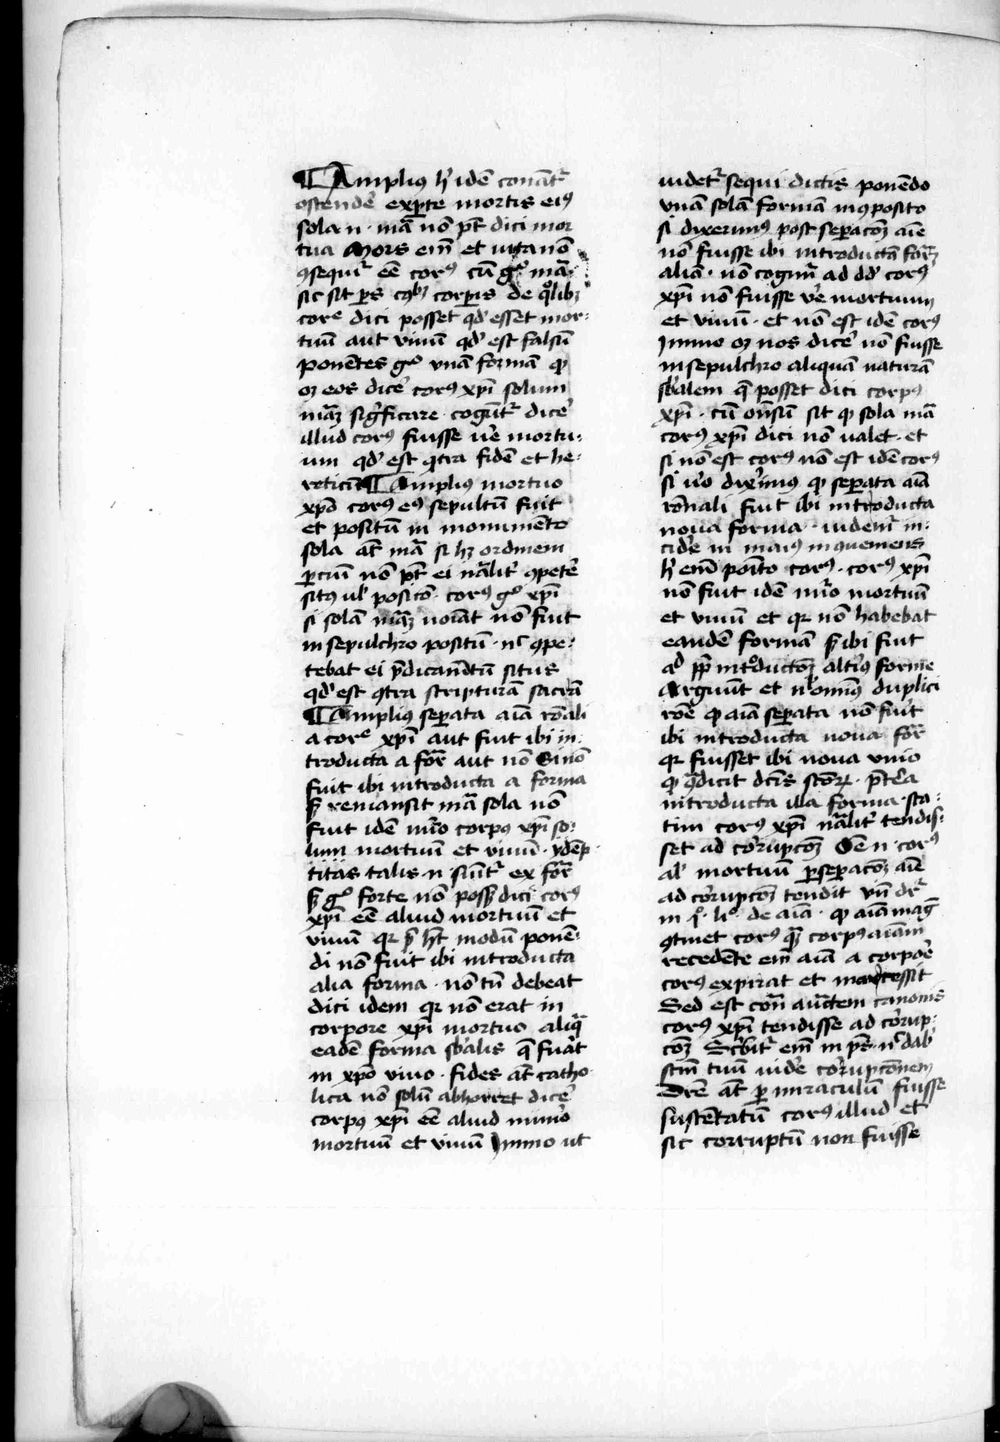 ¶ Ampliꝰ h̾ idē conant᷑
ostende᷑ exꝑte mortis eiꝰ
sola n̄ · mā nō pt̄ dici mor
tua Mors em̄ et uita nō
ꝯsequi᷑ eē corꝰ cū gͦ mā
sic sit ps̄ corꝑis de qͦlibꝫ
corᵉ dici posset qd̾ esset mor-
tuū aut viuū qd̾ est falsū
ponētes gͦ vnā formā ꝙ
oꝫ eos dice᷑ corꝰ xp̄i solum
māꝫ sig̾ficare · cogūt᷑ dice᷑
illud corꝰ fuisse ue᷑ mortu-
um qd̾ est ꝯtra fidē et he-
reticū ¶ Ampliꝰ mortuo
xp̄o corꝰ eꝰ sepultū fuit
et positū in monumēto
sola at̄ mā si hꝫ ordinem
ꝑciū nō pt̄ ei nālit᷑ ꝯpete᷑
sitꝰ ul̾ posicō · corꝰ gͦ xp̄i
si solā māꝫ noīat nō fuit
in sepulchro positū · n̄ ꝯpe-
tebat ei p̄dicamētū situs
qd̾ est ꝯtra scripturā sacrā
¶ Ampliꝰ seꝑata aīa rōnali
a corᵉ xp̄i aut fuit ibi in-
troducta a for̄ aut nō Si nō
fuit ibi introducta a forma
sꝫ remansit mā sola nō
fuit idē nūo corpꝰ xp̄i so-
lum mortuū et viuū · ydēp-
titas talis n̄ sumit᷑ ex for̄
sꝫ gͦ forte nō poss̾ dici corꝰ
xp̄i eē aliud mortuū et
viuū qꝛ sꝫ hūc modū ponē-
di nō fuit ibi introducta
alia forma · nō tn̄ debeat
dici idem qꝛ nō erat in
corpore xp̄i mortuo aliqͣ
eadē forma sb̾alis q̄ fuāt
in xp̄o viuo · fides at̄ catho
lica nō solū abhorret dice᷑
corpꝰ xp̄i eē aliud numo᷑
mortuū et viuū Immo ut
uidet᷑ sequi dictis ponēdo
vnā solā formam in ꝯposito
si dixerimꝰ post seꝑacōꝫ aīe
nō fuisse ibi introductā formā
aliā · nō cogim᷑ ad dd̾ corꝰ
xp̄i nō fuisse ve᷑ mortuum
et viuū · et nō est idē corꝰ
Immo oꝫ nos dice᷑ nō fuisse
in sepulchro aliquā naturā
sb̾alem q̄ posset dici corpꝰ
xp̄i · cū on̄sū sit ꝙ sola mā
corꝰ xp̄i dici nō ualet · et
si nō est corꝰ nō est idē corꝰ
si u̾o dix̾imꝰ ꝙ seꝑata aīa
rōnali fuit ibi introducta
noua forma · uidem᷑ in-
cide᷑ in maiꝰ inꝯueniens
h̾ em̄ poīto corꝰ · corꝰ xp̄i
nō fuit idē nūo mortuū
et viuū et qꝛ nō habebat
eandē formā sꝫ ibi fuit
ad pp̄ intͦductōꝫ alt̾iꝰ forme
Arguūt et nͥ omīꝰ duplici
rōe ꝙ aīa seꝑata nō fuit
ibi introducta noua for̄
qꝛ fuisset ibi noua unio
ꝙ ꝯͣdicit dc̄is scōꝝ · p̄t̾ea
introducta illa forma · sta-
tim corꝰ xp̄i nālit᷑ tendis-
set ad corrupcōꝫ Oē n̄ corꝰ
al̾ mortuū ꝑ seꝑacōꝫ aīe
ad corrupcōꝫ tendit vn̄ dr̄
in pͦ · liͦ · de aīa · ꝙ aīa mag̾
ꝯtinet corꝰ qͣꝫ corpꝰ aīam
recedēte em̄ aīa a corpoe᷑
corꝰ expirat et marcessit
Sed est con̄ auctem canonis
corꝰ xp̄i tendisse ad corrup-
cōꝫ Scͥbit᷑ em̄ in ps̄ · nͨ dab̾
scm̄ tuū uide᷑ corrupcōnem
Dr̄e at̄ ꝑ miraculū fuisse
sustētatū corꝰ illud et
sic corruptū non fuisse